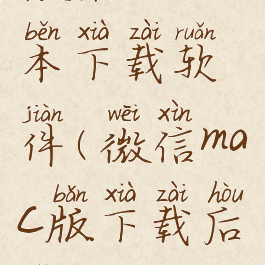 běn xià zài ruǎn
本下载软
jiàn wēi xìn
件(微信ma
bǎn xià zài hòu
c版下载后